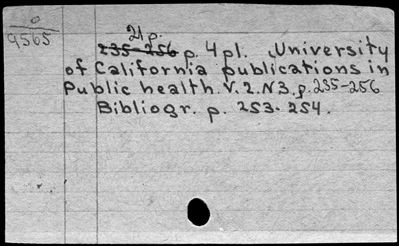 o
9565
21 p.
235-256 p. 4 pl. University
of California publications in
Public health. V. 2. N3. p. 235-256
Bibliogr. p. 253-254.